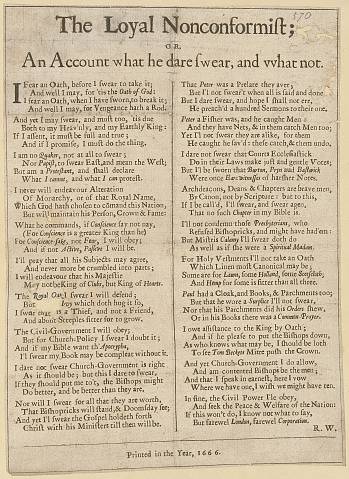 170
The Loyal Nonconformist;
OR,
An Account what he dare swear, and what not.
I Fear an Oath, before I swear to take it;
And well I may, for 'tis the Oath of God:
I fear an Oath, when I have sworn, to break it;
And well I may, for Vengeance hath a Rod.
And yet I may swear, and must too, 'tis due
Both to my Heav'nly, and my Earthly King:
If I assent, it must be full and true;
And if I promise, I must do the thing.
I am no Quaker, not at all to swear;
Nor Papist, to swear East, and mean the West;
But am a Protestant, and shall declare
What I cannot, and what I can protest.
I never will endeavour Alteration
Of Monarchy, or of that Royal Name,
Which God hath chosen to command this Nation,
But will maintain his Person, Crown & Fame:
What he commands, if Conscience say not nay,
(For Conscience is a greater King than he)
For Conscience sake, not Fear, I will obey;
And if not Active, Passive I will be.
I'll pray that all his Subjects may agree,
And never more be crumbled into parts;
I will endeavour that his Majestie
May not be King of Clubs, but King of Hearts.
The Royal Oak I swear I will defend;
But for Ivy which doth hug it so,
I swear that is a Thief, and not a Friend,
And about Steeples fitter for to grow.
The Civil-Government I will obey;
But for Church-Policy I swear I doubt it;
And if my Bible want th'Apocrypha,
I'll swear my Book may be compleat without it.
I dare not swear Church-Government is right
As it should be; but this I dare to swear,
If they should put me to't, the Bishops might
Do better, and be better than they are.
Nor will I swear for all that they are worth,
That Bishopricks will stand, & Doomsday see;
And yet I'll swear the Gospel holdeth forth
Christ with his Ministers till then will be.
That Peter was a Prelate they aver;
But I'll not swear't when all is said and done:
But I dare swear, and hope I shall not err,
He preach'd a hundred Sermons to their one.
Peter a Fisher was, and he caught Men:
And they have Nets, & in them catch Men too;
Yet I'll not swear they are alike, for them
He caught he sav'd: these catch, & them undo.
I dare not swear that Courts Ecclesiastick
Do in their Laws make just and gentle Votes;
But I'll be sworn that Burton, Pryn and Bastwick
Were once Ear-witnesses of harsher Notes.
Archdeacons, Deans & Chapters are brave men,
By Canon, not by Scripture: but to this,
If I be call'd, I'll swear, and swear agen,
That no such Chapter in my Bible is.
I'll not condemn those Presbyterians, who
Refused Bishopricks, and might have had'em:
But Mistris Calamy I'll swear doth do
As well as if she were a Spiritual Madam.
For Holy Vestments I'll not take an Oath
Which Linen most Canonical may be;
Some are for Lawn, some Holland, some Scotscloth;
And Hemp for some is fitter than all three.
Paul had a Cloak, and Books, & Parchments too;
But that he wore a Surplice I'll not swear,
Nor that his Parchments did his Orders shew,
Or in his Books there was a Common-Prayer.
I owe assistance to the King by Oath;
And if he please to put the Bishops down,
As who knows what may be, I should be loth
To see Tom Beckets Mitre push the Crown.
And yet Church-Government I do allow,
And am contented Bishops be the men;
And that I speak in earnest, here I vow
Where we have one, I wish we might have ten.
In fine, the Civil Power I'le obey,
And seek the Peace & Welfare of the Nation:
If this won't do, I know not what to say,
But farewel London, farewel Corporation.
R. W.
Printed in the Year, 1666.